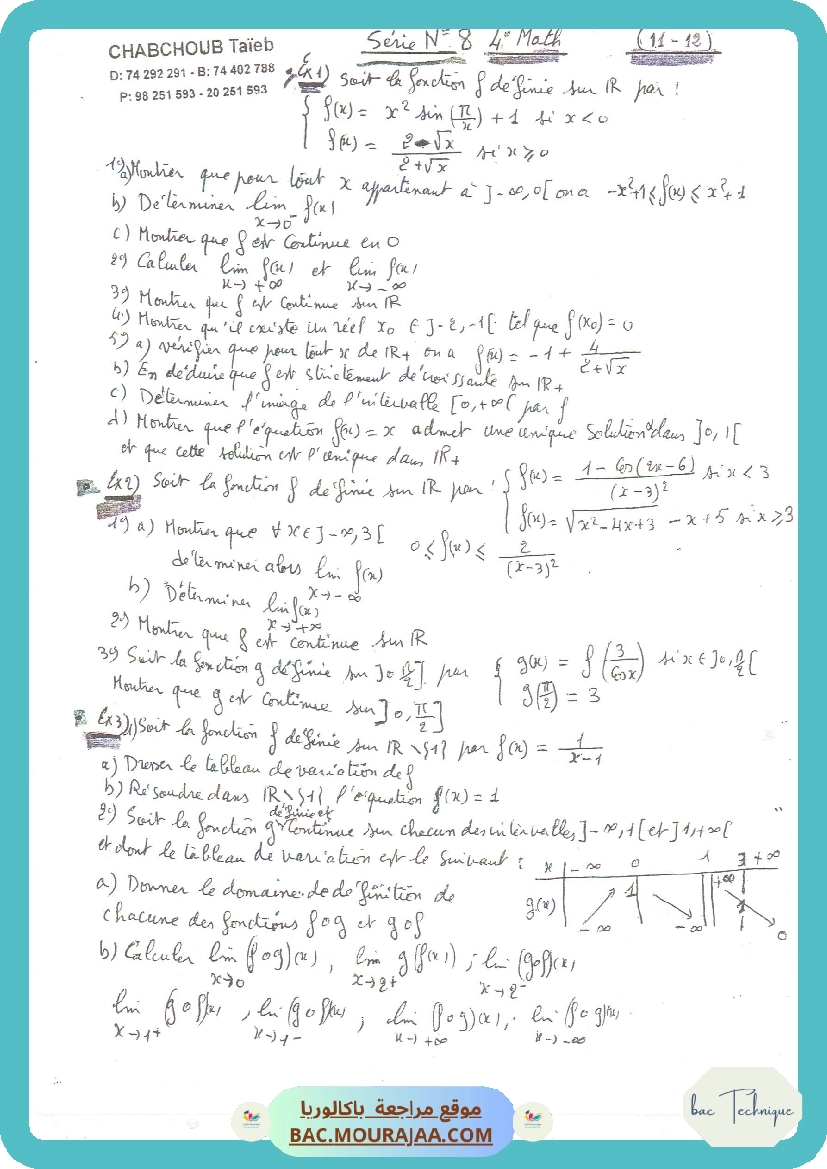 CHABCHOUB Taïeb
D: 74 292 291 - B: 74 402 788
P: 98 251 593 - 20 251 593
Série N° 8 4° Math (11-12)
Ex1) Soit la fonction f définie sur IR par :
f(x) = x² sin(π/x) + 1 si x < 0
f(x) = (2 - √x)/(2 + √x) si x ≥ 0
1°) a) Montrer que pour tout x appartenant à ]-∞, 0[ on a -x²+1 ≤ f(x) ≤ x²+1
b) Déterminer lim x→0⁻ f(x)
c) Montrer que f est continue en 0
2°) Calculer lim x→+∞ f(x) et lim x→-∞ f(x)
3°) Montrer que f est continue sur IR
4°) Montrer qu'il existe un réel x₀ ∈ ]-2, -1[ tel que f(x₀) = 0
5°) a) vérifier que pour tout x de IR₊ on a f(x) = -1 + 4/(2+√x)
b) En déduire que f est strictement décroissante sur IR₊
c) Déterminer l'image de l'intervalle [0, +∞[ par f
d) Montrer que l'équation f(x) = x admet une unique solution α dans ]0, 1[
et que cette solution est l'unique dans IR₊
Ex2) Soit la fonction f définie sur IR par :
f(x) = (1 - Cos(2x-6))/(x-3)² si x < 3
f(x) = √(x²-4x+3) - x + 5 si x ≥ 3
1°) a) Montrer que ∀ x ∈ ]-∞, 3[ 0 ≤ f(x) ≤ 2/(x-3)²
déterminer alors lim x→-∞ f(x)
b) Déterminer lim x→+∞ f(x)
2°) Montrer que f est continue sur IR
3°) Soit la fonction g définie sur ]0, π/2] par
g(x) = f(3/Cosx) si x ∈ ]0, π/2[
g(π/2) = 3
Montrer que g est continue sur ]0, π/2]
Ex3) 1) Soit la fonction f définie sur IR \ {1} par f(x) = 1/(x-1)
a) Dresser le tableau de variation de f
b) Résoudre dans IR \ {1} l'équation f(x) = 1
2°) Soit la fonction g définie et continue sur chacun des intervalles ]-∞, 1[ et ]1, +∞[
et dont le tableau de variation est le suivant :
x -∞ 0 1 3 +∞
g(x) -∞ 1 -∞ +∞ 1 0
a) Donner le domaine de définition de
chacune des fonctions fog et gof
b) Calculer lim x→0 (fog)(x), lim x→2⁺ g(f(x)) ; lim x→2⁻ (gof)(x)
lim x→1⁺ (gof)(x), lim x→1⁻ (gof)(x) ; lim x→+∞ (fog)(x), lim x→-∞ (fog)(x)
bac Technique
موقع مراجعة باكالوريا
BAC.MOURAJAA.COM